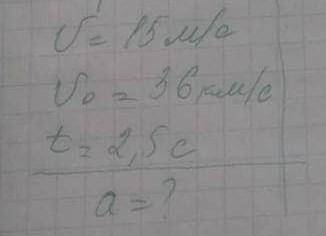 υ = 15 м/с
υ₀ = 36 км/с
t = 2,5 с
a = ?